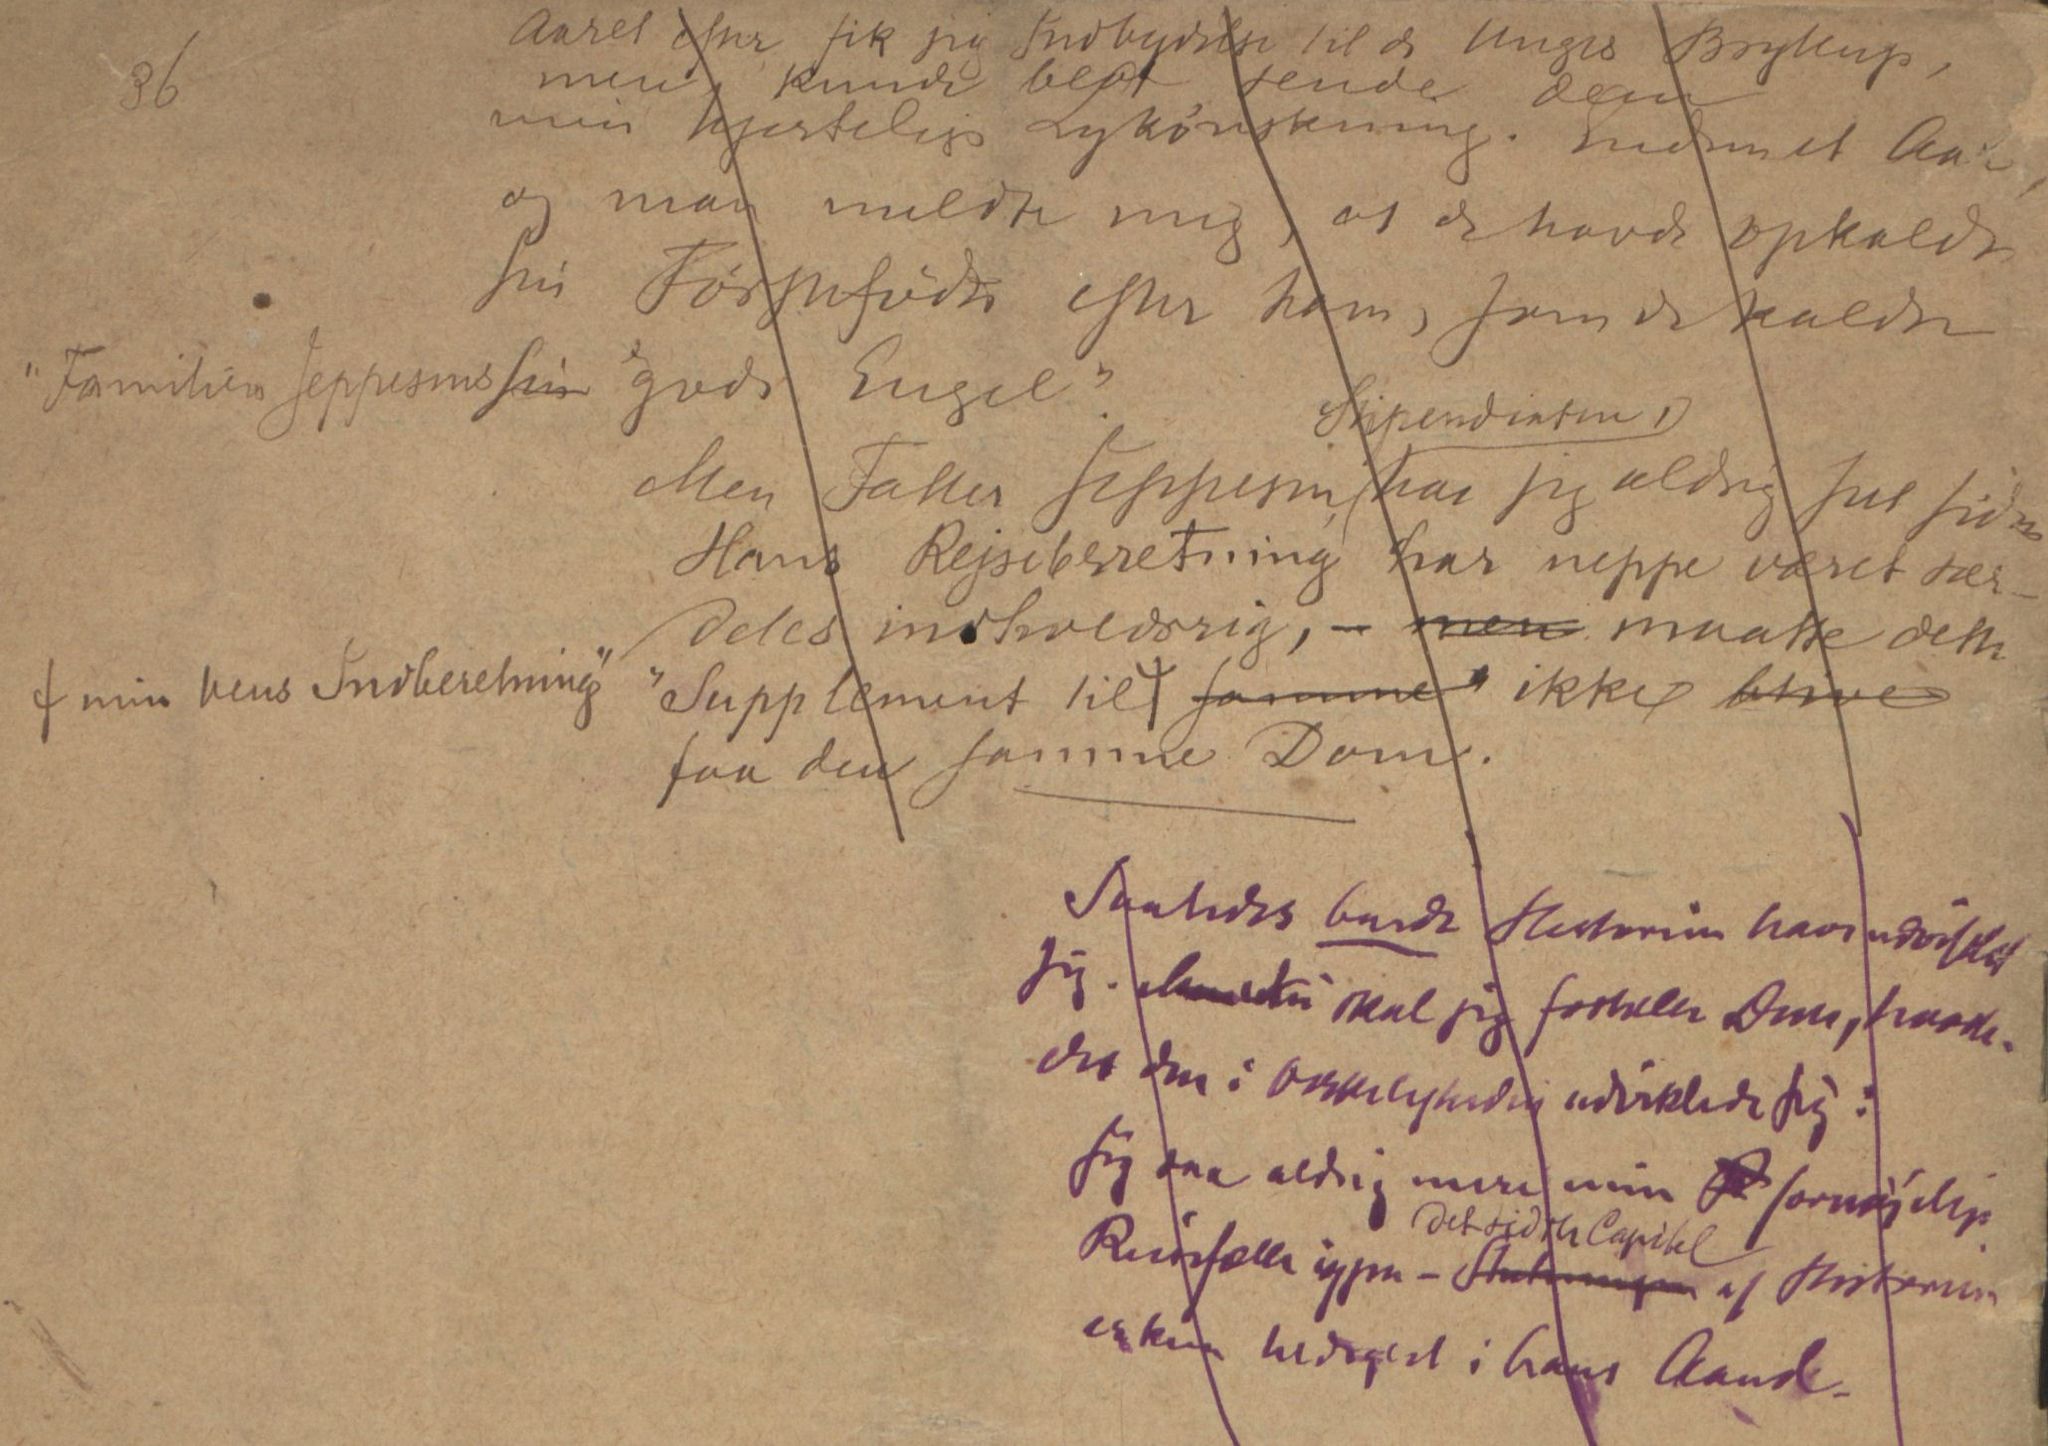 36
Aaret efter fik jeg Indbydelse til de Unges Bryllup,
men kunde blot sende dem
min hjertelige Lykönskning. Endnu et Aar,
og man meldte mig, at de havde opkaldt
sin Förstefödte efter ham, som de kaldte
"Familien Jeppesens sin "gode Engel".
Stipendiaten,
Men Fatter Jeppesen, har jeg aldrig set siden
Hans Rejseberetning har neppe været sær-
deles indholdsrig, – men maatte dette
min Vens Indberetning" "Supplement til samme" ikke blive
faa den samme Dom.
Saaledes burde Historien have udviklet
sig. skal jeg fortælle Dem, hvorle-
des den i Virkeligheden udviklede sig:
Jeg saa aldrig mere min fornöjelige
det sidste Capitel
Rejsefælle igjen – Slutningen af Historien
er kun hedigtet i hans Aand.